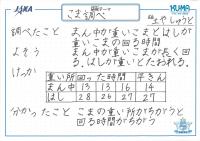 こま調べ
調べたこと まん中が重いこまとはしが
重いこまの回る時間
よそう まん中が重いこまが長く回
る。はしが重いとたおれる。
けっか
重い所 回った時間 平きん
まん中 13 13 16 14
はし 28 26 27 27
分かったこと こまの重い所がちがうと
回る時間がちがう